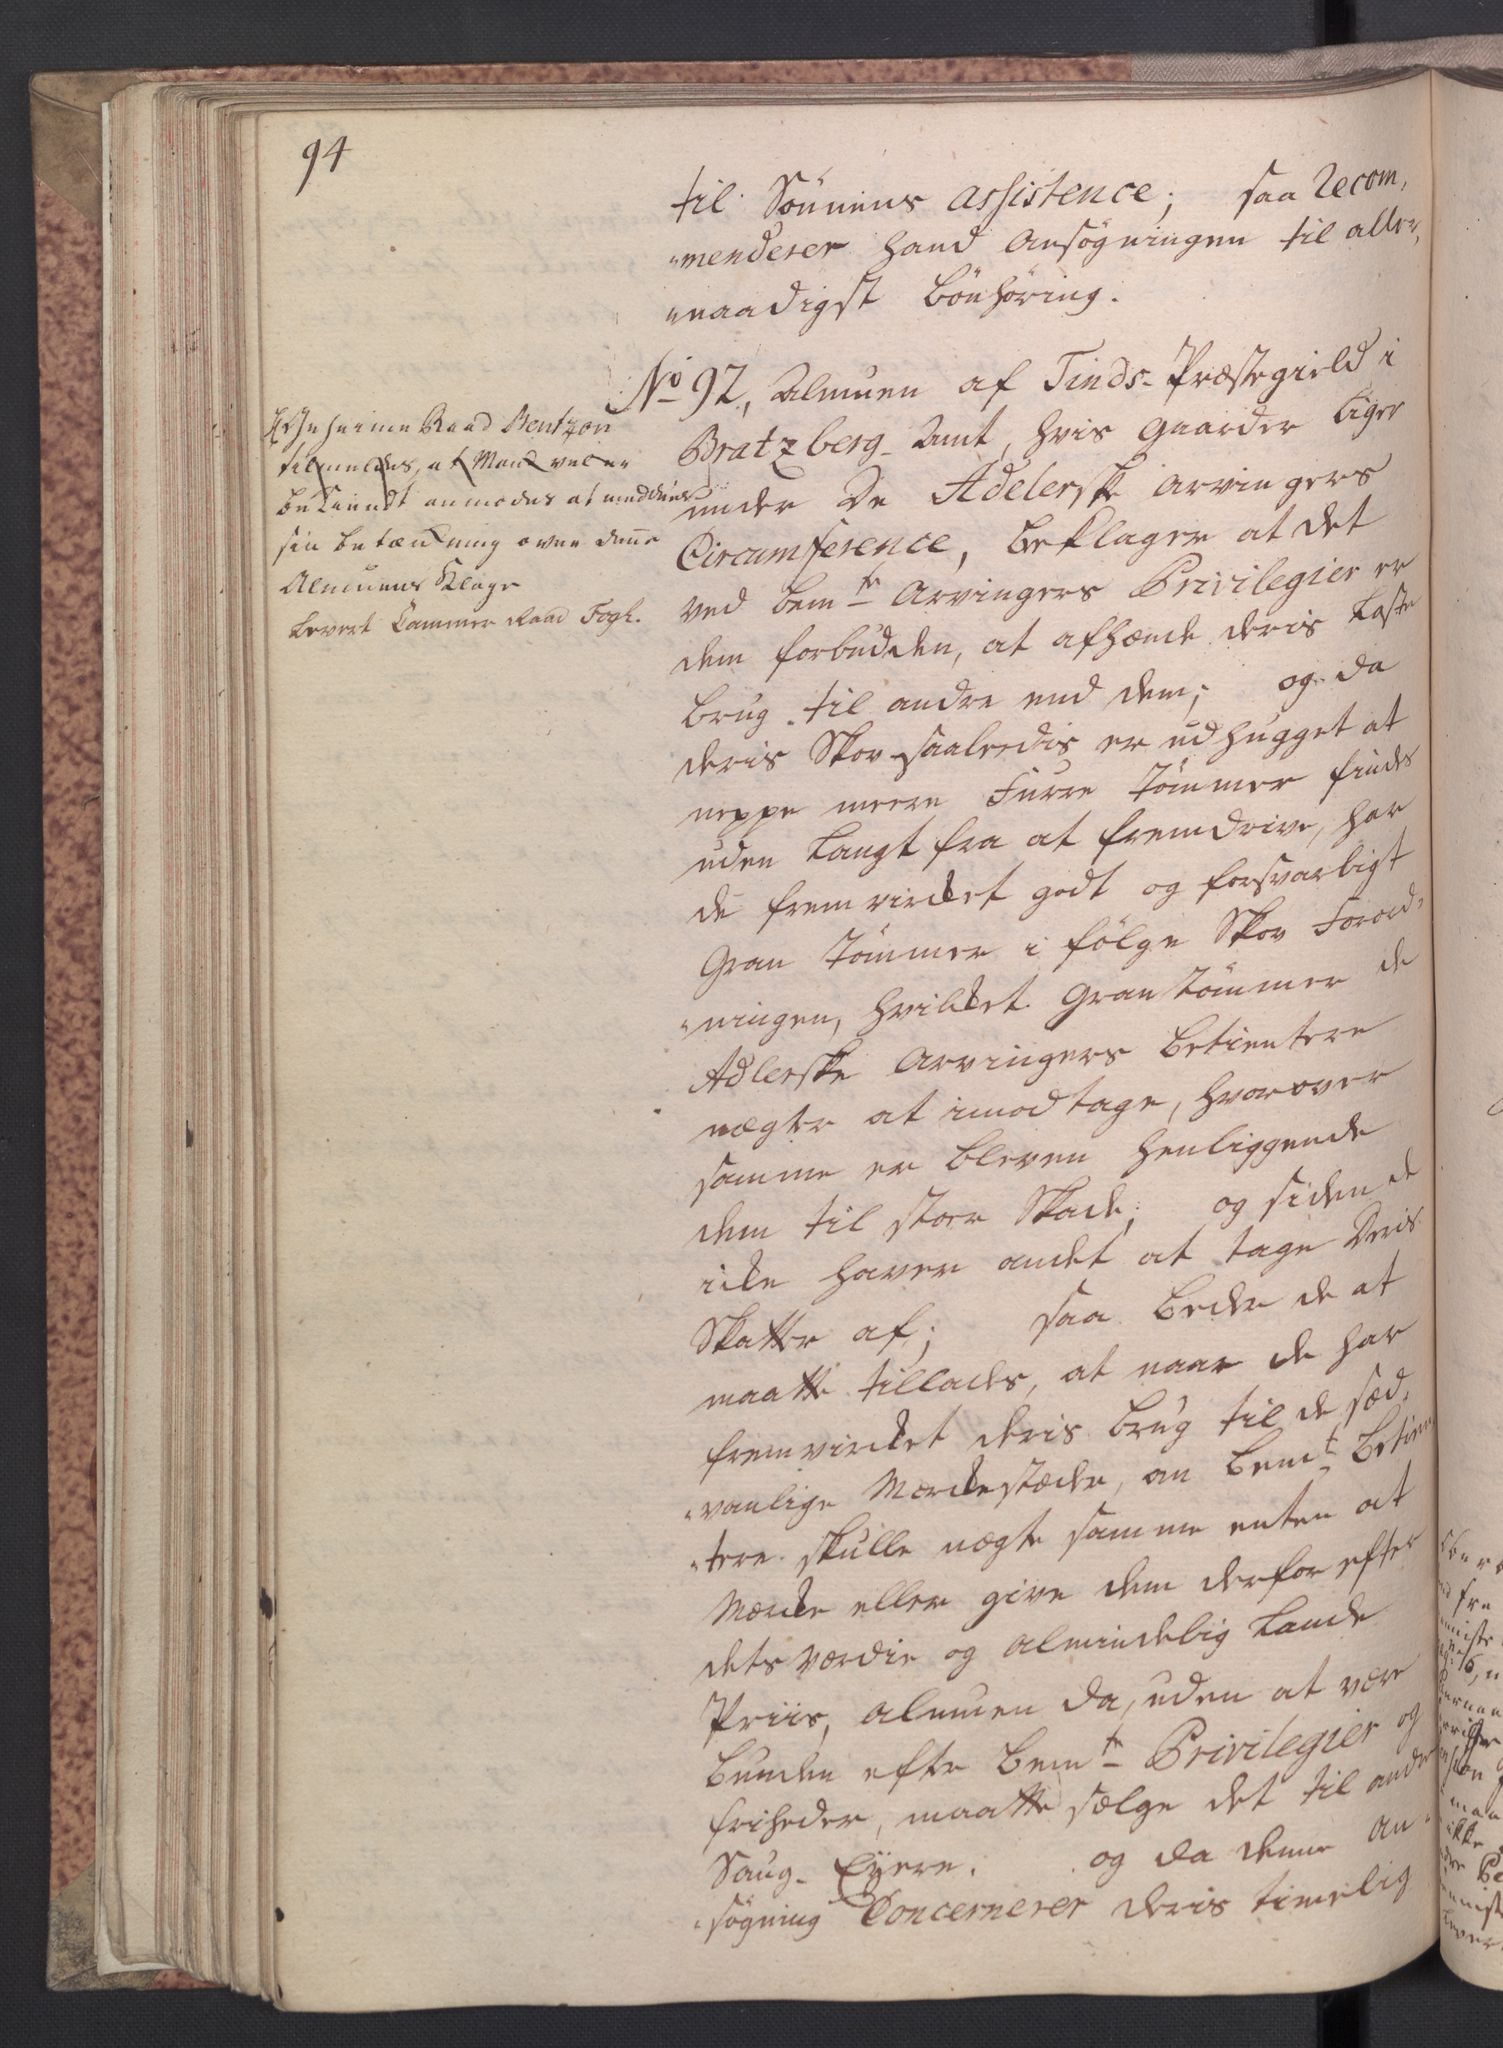 94
til Sönnens assistence; saa Recom,
"menderer hand Ansögningen til aller,
"naadigst bönhöring.
No 92, Almuen af Tinds-Præstegield i
Bratzberg-Amt, hvis gaarder liger
under De Adelerske Arvingers
Circumference, beklager at det
ved bemte Arvingers Privilegier er
dem forbudden, at afhænde deris Laste
brug til andre end dem; og da
deris Skov saaledis er udhugget at
neppe meere Furre Tömmer findes
uden langt fra at fremdrive, har
de fremvircket godt og forsvarligt
Gran Tömmer i fölge Skov Forord,
"ningen, hvilcket Gran Tömmer de
Adlerske Arvingers betientere
nægter at imodtage, hvorover
samme er bleven henliggende
dem til stoer Skade; og siden de
icke haver andet at tage Deris
Skatter af; saa beder de at
maatte tillades, at naar de har
fremvircket deris brug til de sæd,
"vanlige Mærckestæder, an bemt betien
"tere skulle nægte samme enten at
Mærcke eller give dem derfor efter
dets værdie og almindelig Lands
Priis, almuen da, uden at være
bunden efter bemte Privilegier og
friheder, maatte sælge det til andre
Saug-Eÿere. og da denne an-
"sögning Concernerer deris timelig
Geheime Raad Bentzon
tilmeldes, at Mand vel er
bekiendt anmodes at meddeele
sin betænkning over denne
Almuens Klage
Levert Cammer Raad Fogh.